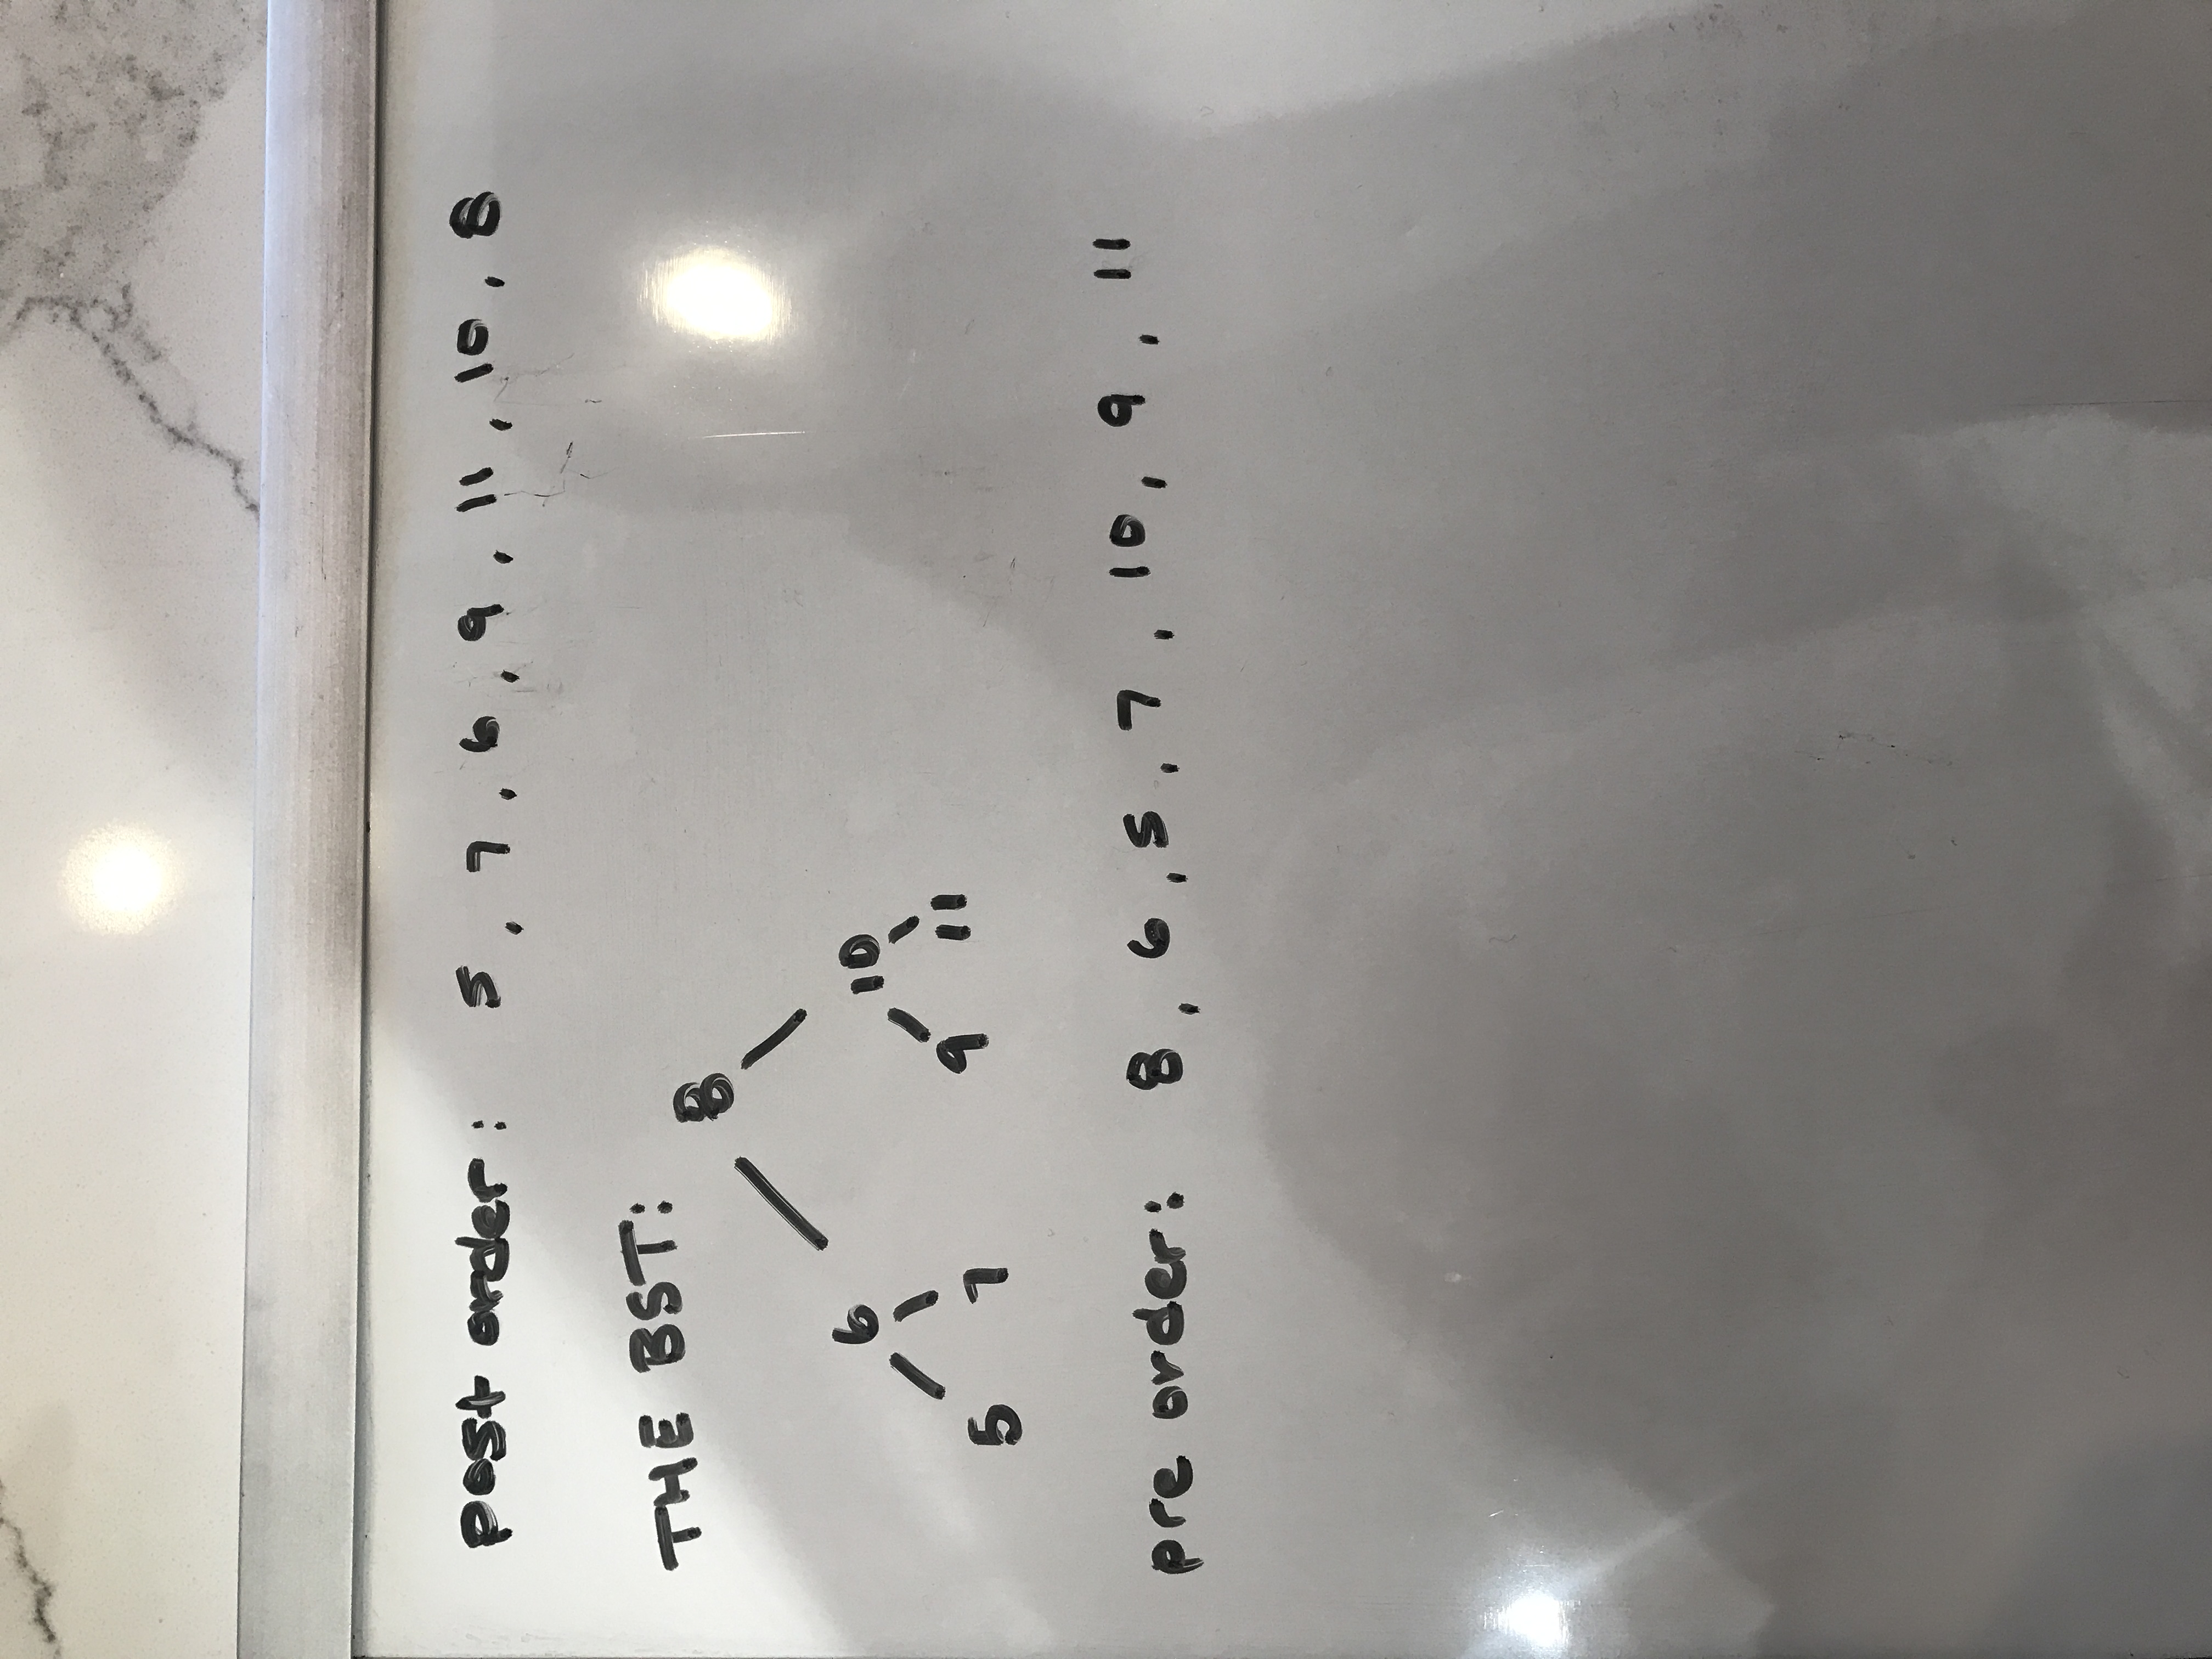 post order: 5, 7, 6, 9, 11, 10, 8
THE BST:
8
6 10
5 7 9 11
pre order: 8, 6, 5, 7, 10, 9, 11